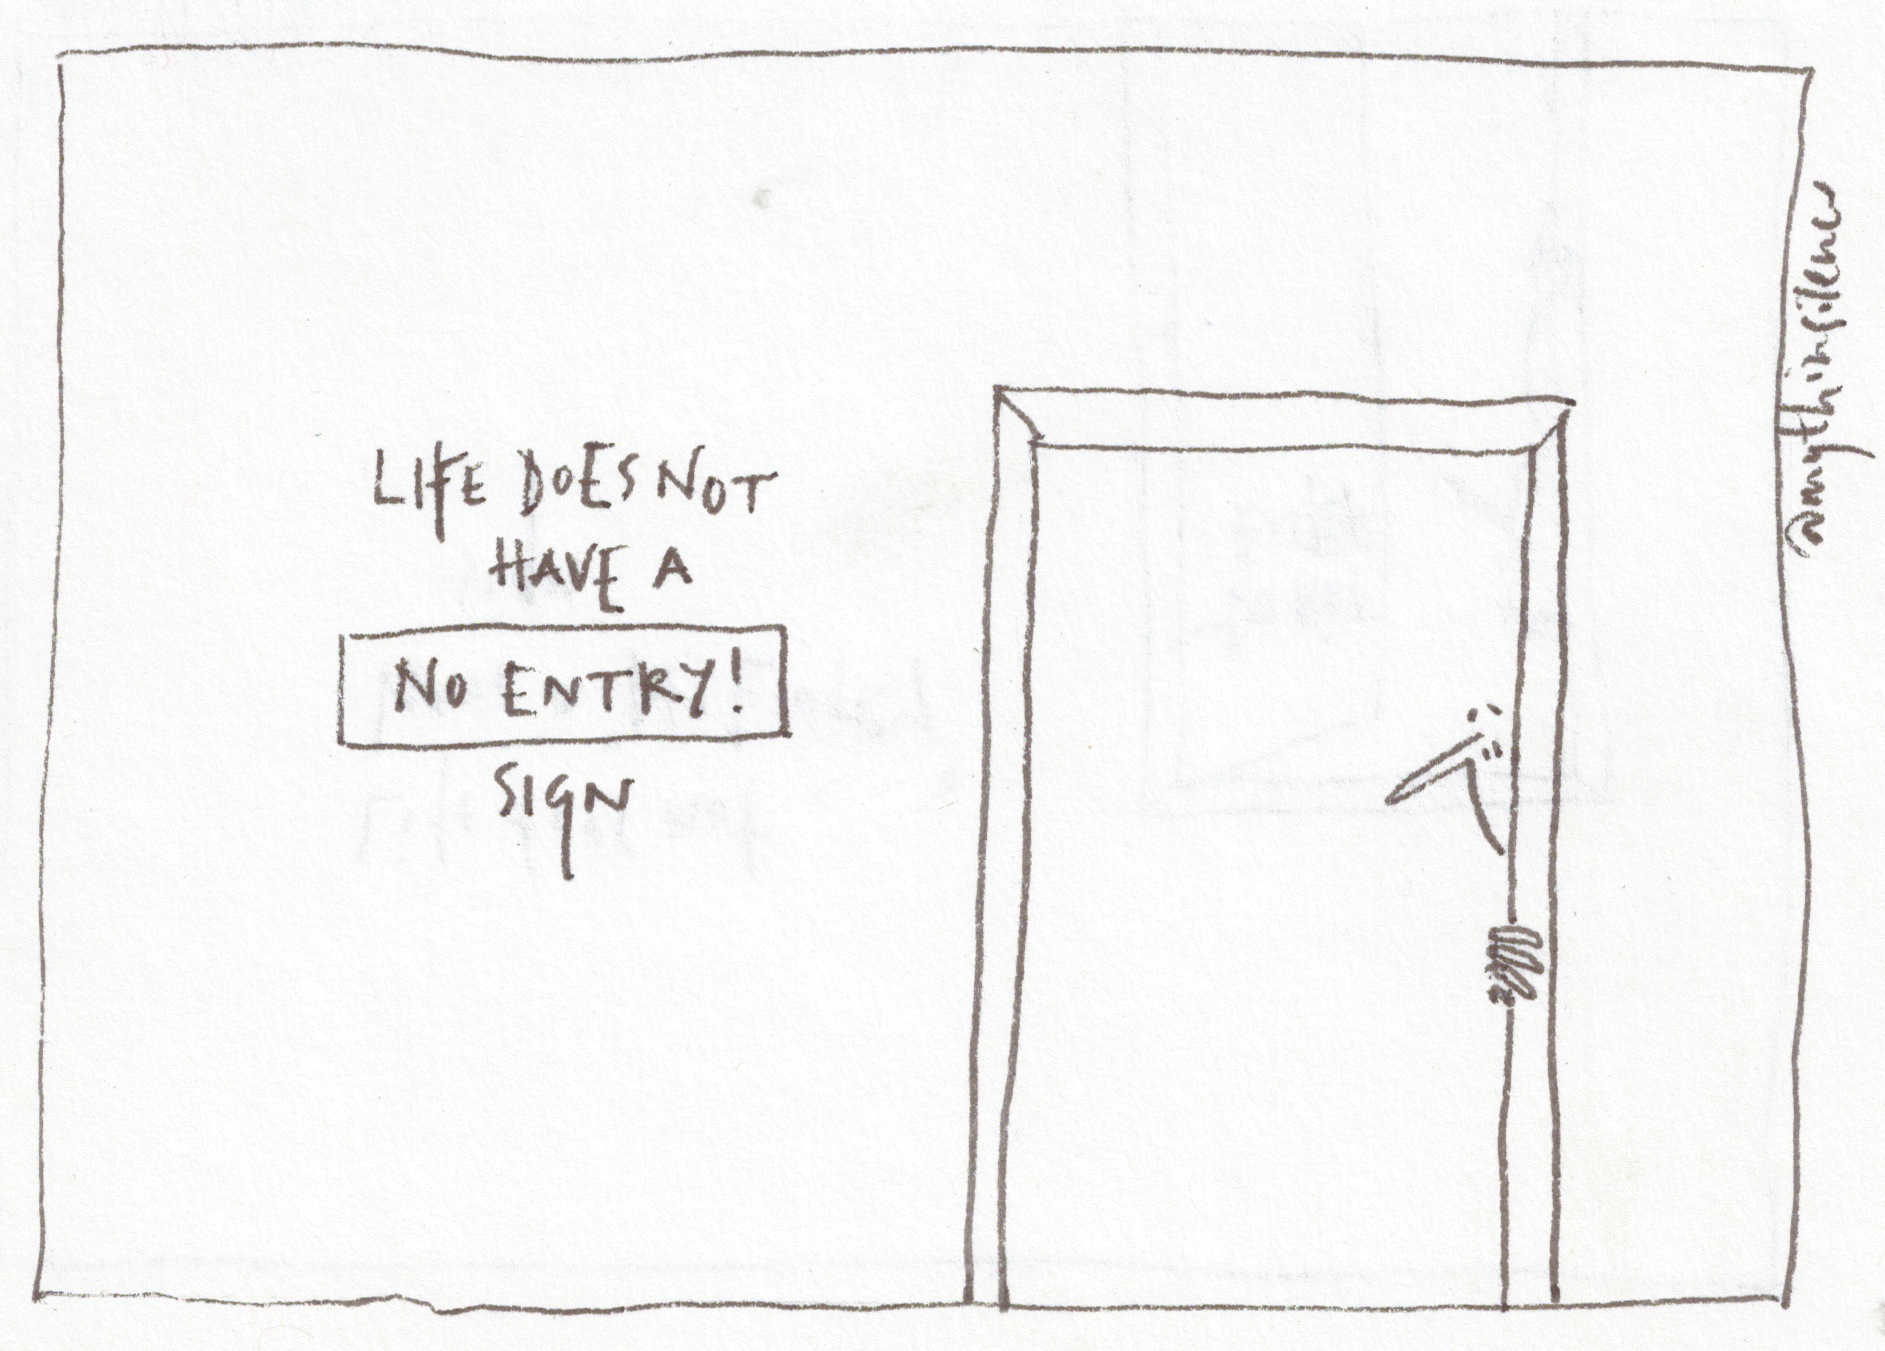 LIFE DOES NOT
HAVE A
NO ENTRY!
SIGN
@mythinsilence